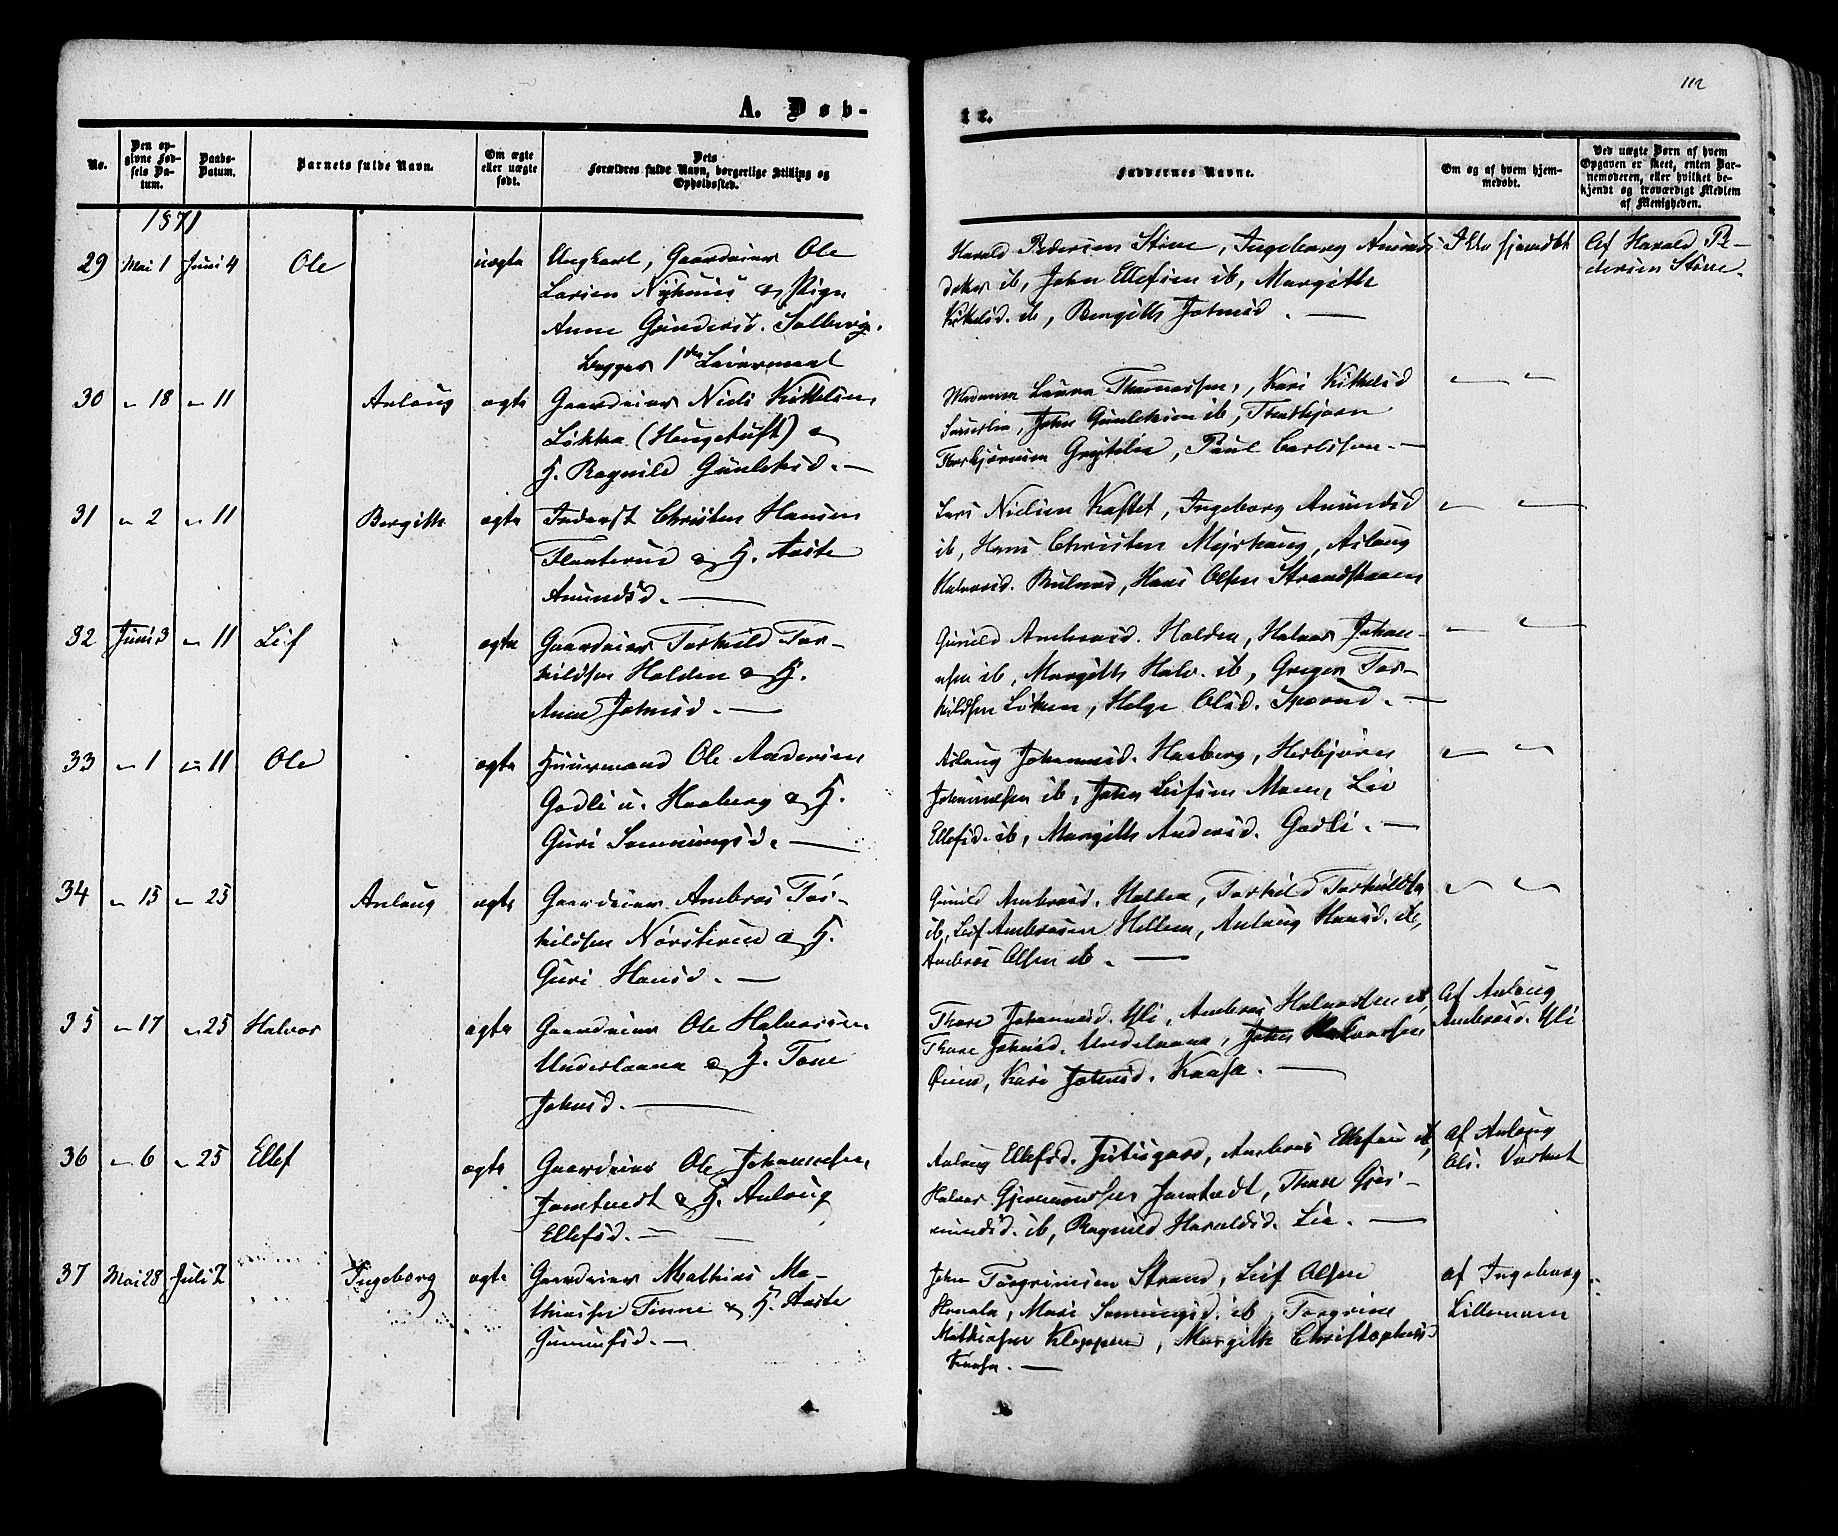 112
A. Døb-
te.
No.
Den op-
givne Fød-
sels Da-
tum.
Daabs-
Datum.
Barnets fulde Navn.
Om ægte
eller uægte
født.
Dets
Forældres fulde Navn, borgerlige Stilling og
Opholdssted.
Faddernes Navne.
Om og af hvem hjem-
medøbt.
Ved uægte Børn af hvem
Opgaven er skeet, enten Bar-
nemoderen, eller hvilket be-
kjendt og troværdigt Medlem
af Menigheden.
1871
29 Mai 1 Juni 4 Ole uægte
Ungkarl, Gaardeier Ole
Larsen Nyhuus & Pige
Anne Gundersd. Solberg.
Begges 1ste Leiermaal
Harald Pedersen Støve, Ingeborg Amunds-
datter ib, John Ellefsen ib, Margithe
Kittelsd. ib, Bergith Johnsd. —
Ikke hjemdøbt
Af Harald Pe-
dersen Støve.
30 " 18 " 11 Aslaug ægte
Gaardeier Niels Kittelsen
Løkka (Haugetuft) &
H. Ragnild Gunleksd. —
Madame Laura Thomassen, Kari Kittelsd
John Gunleksen ib, Thorbjørn
Thorbjørnsen Grytelie, Paul Carlsson. —
" "
31 " 2 " 11 Bergith ægte
Inderst Christen Hansen
Flaaterud & H. Aaste
Amundsd. —
Lars Nielsen Kaftet, Ingeborg Amundsd
ib, Hans Christen Myrhaug, Aslaug
Halvorsd. Hans Olsen Strandskaaen
" "
32 Juni 3 " 11 Leif ægte
Gaardeier Torkild Tor-
kildsen Holden & H.
Anne Johnsd. —
Gunild Ambrosd. Holden, Halvor Johan-
nsen ib, Margith Halv. ib, Gregar Tor-
kildsen Løken, Helge Olsd. —
" "
33 " 1 " 11 Ole ægte
Huusmand Ole Andersen
Godli u. Haaberg & H.
Guri Sonningsd. —
Aslaug Johannesd. Haaberg, Herbjørn
Johannesen ib, John Leifsen Moen, Liv
Ellefsd. ib, Margith Andersd. Godli. —
" "
34 " 15 " 25 Aslaug ægte
Gaardeier Ambros Tor-
kildsen Nørsterud & H.
Guri Hansd. —
Gunild Ambrosd. Holden, Torkild Torkildsen
ib, Leif Ambrosen Hellem, Aslaug Hansd. ib,
Ambros Olsen ib. —
" "
35 " 17 " 25 Halvor ægte
Gaardeier Ole Halvorsen
Underlaana & H. Tone
Johnsd. —
Thore Johannesd. Yli, Ambros Halvorsen ib,
Thore Johnsd. Undelaana, John Halvorsen
Øien, Kari Johnsd. Kaasa. —
Af Aslaug
Ambrosd. Yli
36 " 6 " 25 Ellef ægte
Gaardeier Ole Johannesen
Jomtvedt & H. Aslaug
Ellefsd. —
Aslaug Ellefsd. Jutisgaard, Ambros Ellefsen ib,
Halvor Gjermundsen Jomtvedt, Thore Gjer-
mundsd. ib, Ragnild Haraldsd. Lie. —
af Aslaug
Ols.
37 Mai 28 Juli 2 Ingeborg ægte
Gaardeier Mathias Ma-
thiasen Tinne & H. Aaste
Gunnufsd. —
John Torgrimsen Strand, Leif Olsen
Hovala, Mari Sonningsd. ib, Torgrim
Mathiasen Kloppen, Margith Christophers.
Kaasa. —
af Ingeborg
Lillemoen